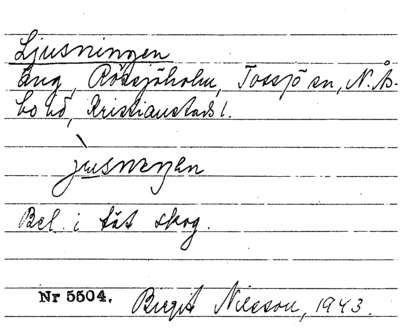 Ljusningen
Äng, Rössjöholm, Tossjö sn, N. Ås-
bo hd, Kristianstads l.
jusnengen
Bel. i tät skog.
Nr 5504. Birgit Nilsson, 1943.